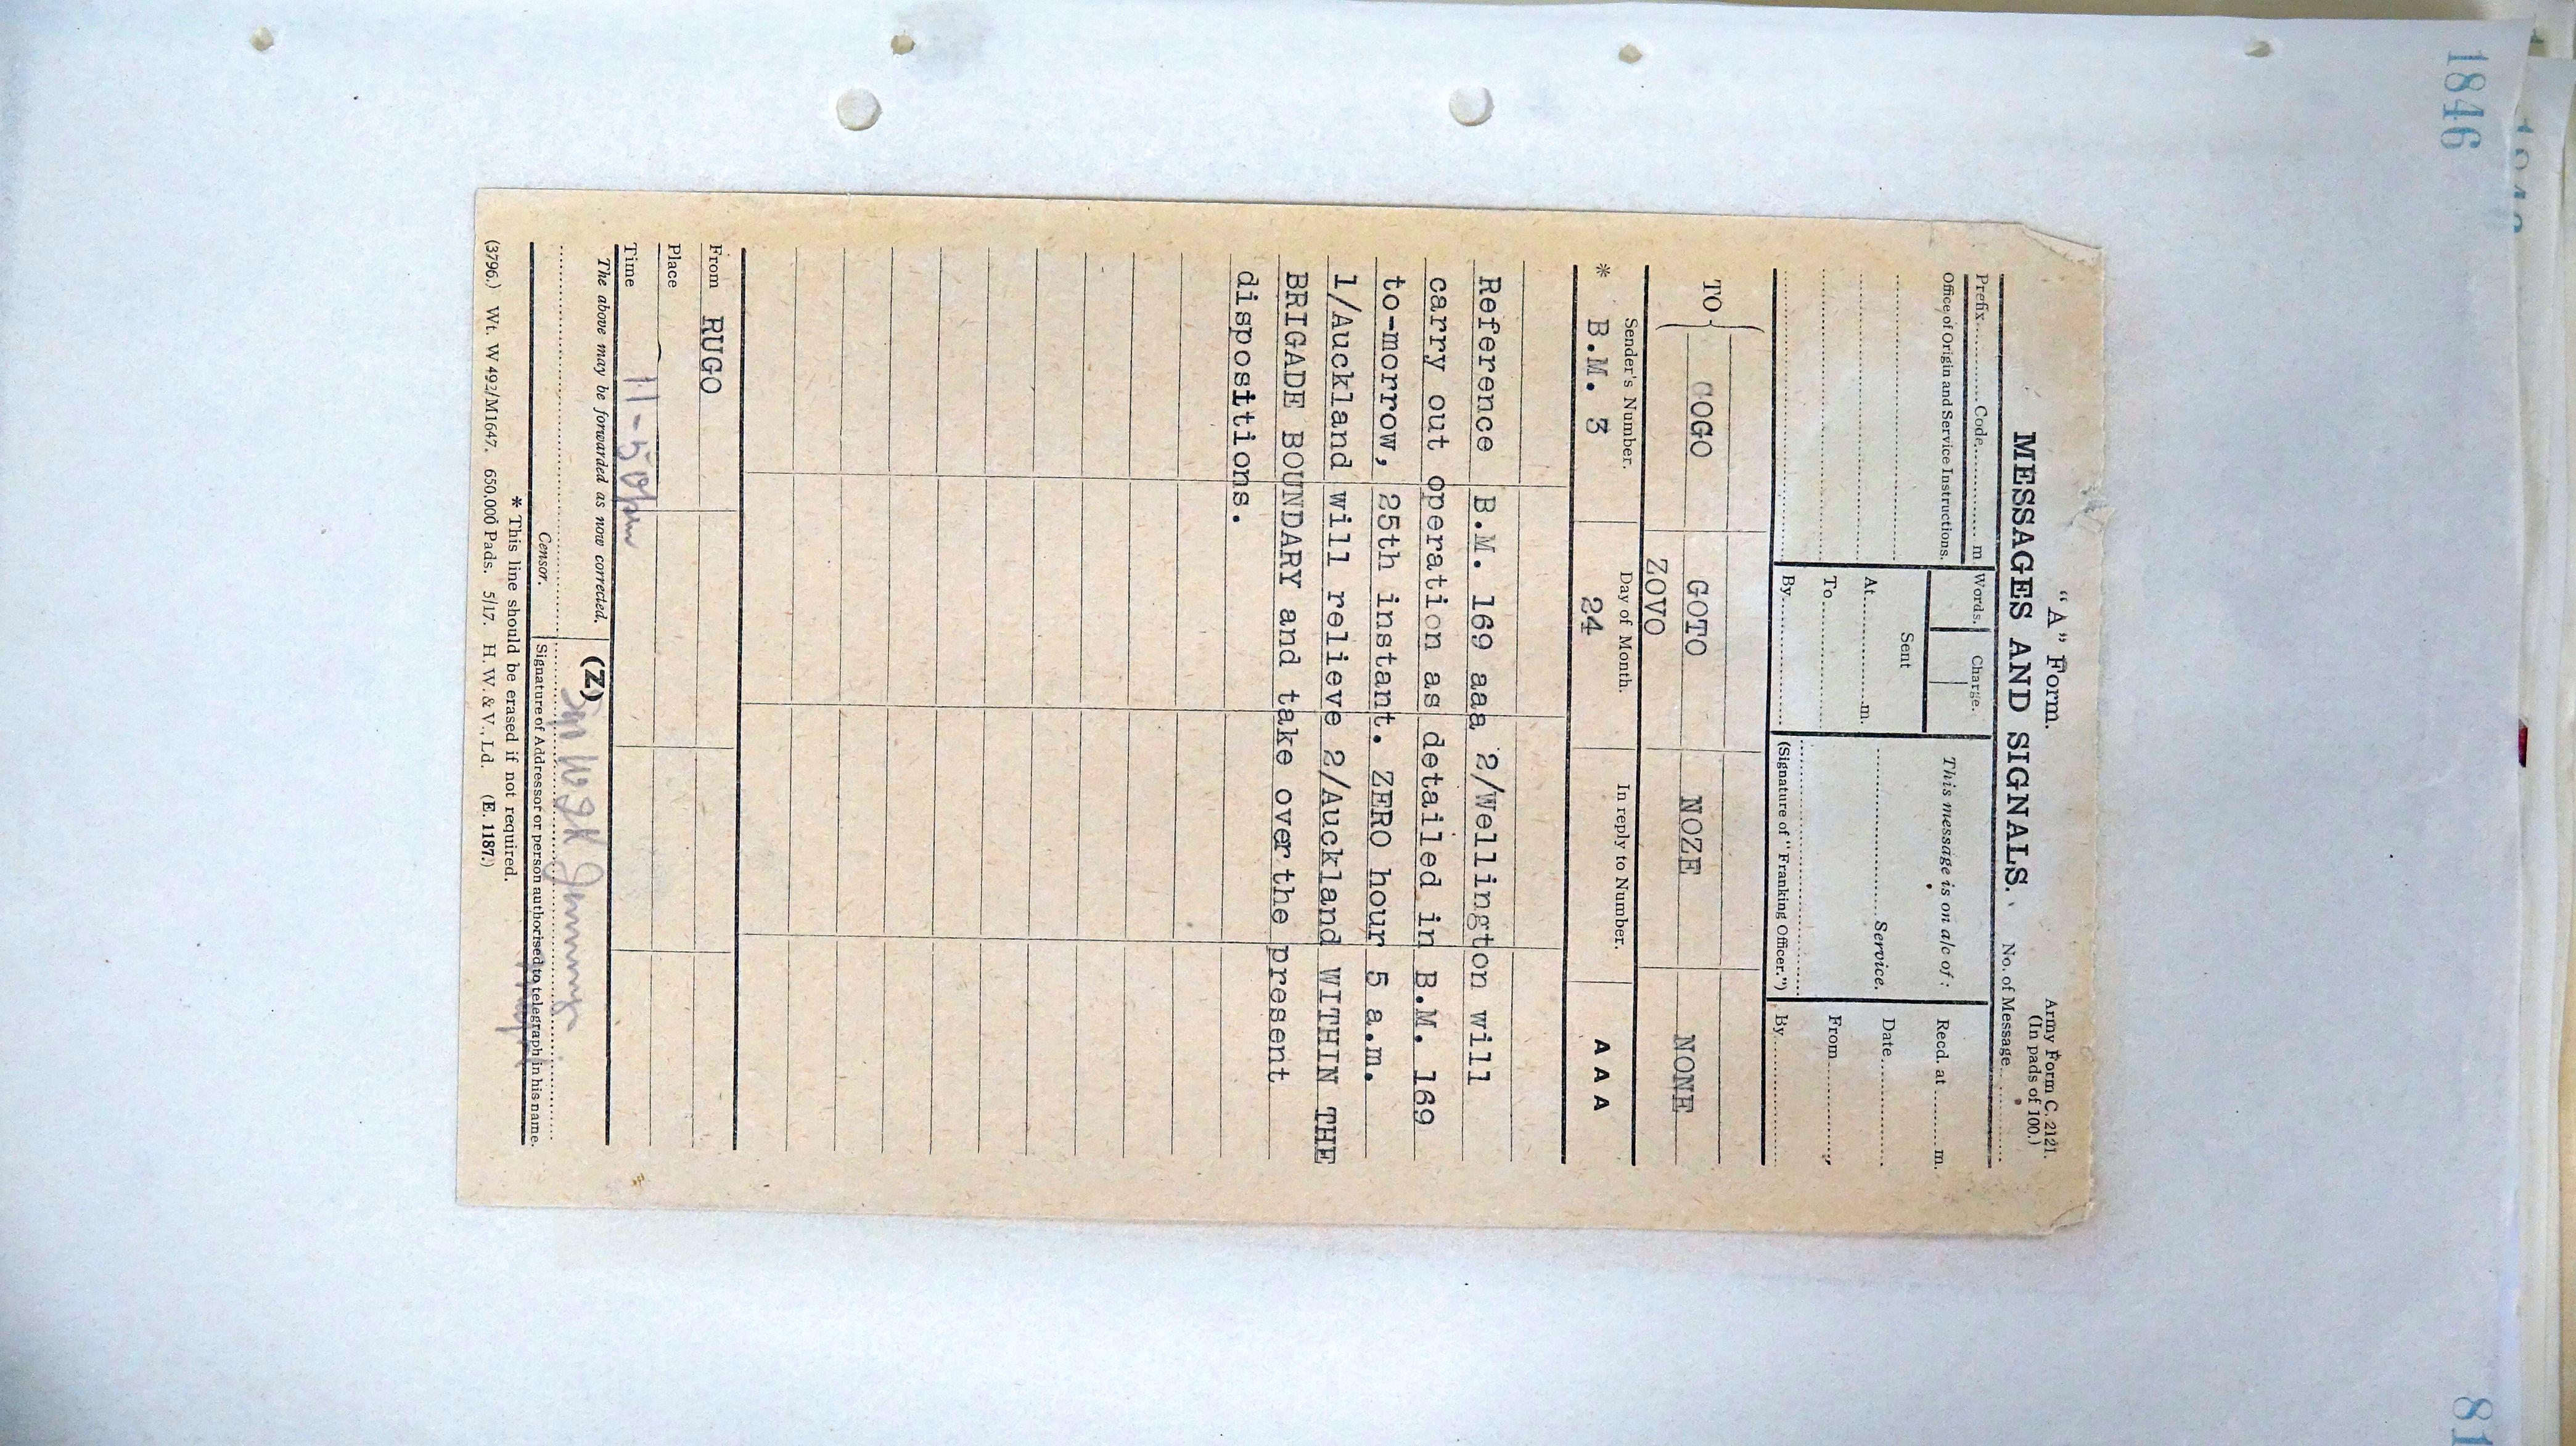 1846
"A" Form.
Army Form C. 2121.
(In pads of 100.)
MESSAGES AND SIGNALS.
No. of Message
Prefix Code m
Words. Charge.
This message is on a/c of :
Recd. at m.
Office of Origin and Service Instructions.
Sent
Service.
Date
At m.
From
To
By
(Signature of "Franking Officer.")
By
TO
COGO GOTO NOZE NONE
ZOVO
Sender's Number. Day of Month. In reply to Number.
* B.M. 3 24 A A A
Reference B.M. 169 aaa 2/Wellington will
carry out operation as detailed in B.M. 169
to-morrow, 25th instant. ZERO hour 5 a.m.
1/Auckland will relieve 2/Auckland WITHIN THE
BRIGADE BOUNDARY and take over the present
dispositions.
From RUGO
Place
Time 11-50pm
The above may be forwarded as now corrected.
(Z)
Censor.
Signature of Addressor or person authorised to telegraph in his name.
* This line should be erased if not required.
(3796.) Wt. W 492/M1647. 650,000 Pads. 5/17. H. W. & V., Ld. (E. 1187.)
81